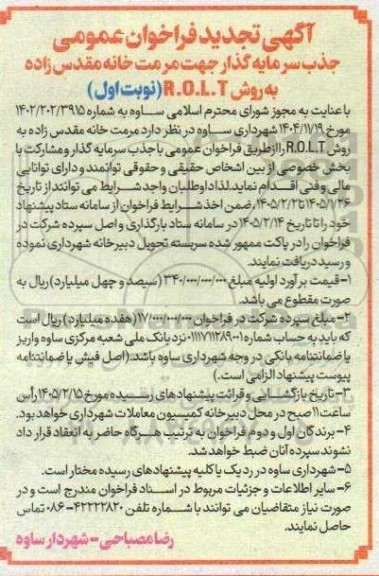 آگهی تجدید فراخوان عمومی
جذب سرمایه گذار جهت مرمت خانه مقدس زاده
به روش R.O.L.T (نوبت اول)
با عنایت به مجوز شورای محترم اسلامی ساوه به شماره ۱۴۰۲/۲۰۲/۳۹۱۵
مورخ ۱۴۰۴/۱۱/۱۹ شهرداری ساوه در نظر دارد مرمت خانه مقدس زاده به
روش R.O.L.T را از طریق فراخوان عمومی با جذب سرمایه گذار و مشارکت با
بخش خصوصی از بین اشخاص حقیقی و حقوقی توانمند و دارای توانایی
مالی و فنی اقدام نماید. لذا داوطلبان واجد شرایط می توانند از تاریخ
۱۴۰۵/۱/۲۶ تا ۱۴۰۵/۲/۲، ضمن اخذ شرایط فراخوان از سامانه ستاد پیشنهاد
خود را تا تاریخ ۱۴۰۵/۲/۱۴ در سامانه ستاد بارگذاری و اصل سپرده شرکت در
فراخوان را در پاکت ممهور شده سربسته تحویل دبیرخانه شهرداری نموده
و رسید دریافت نمایند.
۱- قیمت برآورد اولیه مبلغ ۳۴۰/۰۰۰/۰۰۰/۰۰۰ (سیصد و چهل میلیارد) ریال به
صورت مقطوع می باشد.
۲- مبلغ سپرده شرکت در فراخوان ۱۷/۰۰۰/۰۰۰/۰۰۰ (هفده میلیارد) ریال است
که باید به حساب شماره ۰۱۱۱۷۱۱۳۸۹۰۰۱ نزد بانک ملی شعبه مرکزی ساوه واریز
یا ضمانتنامه بانکی در وجه شهرداری ساوه باشد. (اصل فیش یا ضمانتنامه
پیوست پیشنهاد الزامی است.)
۳- تاریخ بازگشایی و قرائت پیشنهادهای رسیده مورخ ۱۴۰۵/۲/۱۵ رأس
ساعت ۱۱ صبح در محل دبیرخانه کمیسیون معاملات شهرداری خواهد بود.
۴- برندگان اول و دوم فراخوان به ترتیب هرگاه حاضر به انعقاد قرار داد
نشوند سپرده آنان ضبط خواهد شد.
۵- شهرداری ساوه در رد یک یا کلیه پیشنهادهای رسیده مختار است.
۶- سایر اطلاعات و جزئیات مربوط در اسناد فراخوان مندرج است و در
صورت نیاز متقاضیان می توانند با شماره تلفن ۴۲۲۲۲۸۲۰-۰۸۶ تماس
حاصل نمایند.
رضا مصباحی - شهردار ساوه